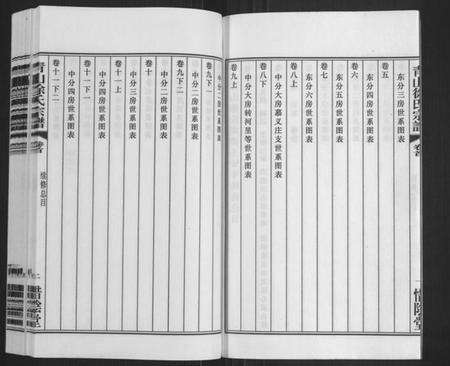 青山徐氏宗譜
卷首
惜陰堂
卷五
东分三房世系图表
卷六
东分四房世系图表
卷七
东分五房世系图表
东分六房世系图表
卷八上
中分大房慕义庄支世系图表
卷八下
中分大房转河里等世系图表
卷九上
中分二房世系图表
卷九下一
中分二房世系图表
卷九下二
中分二房世系图表
卷十上
中分三房世系图表
卷十一下一
中分四房世系图表
卷十一下二
中分四房世系图表
青山徐氏宗譜
卷首
续修总目
二